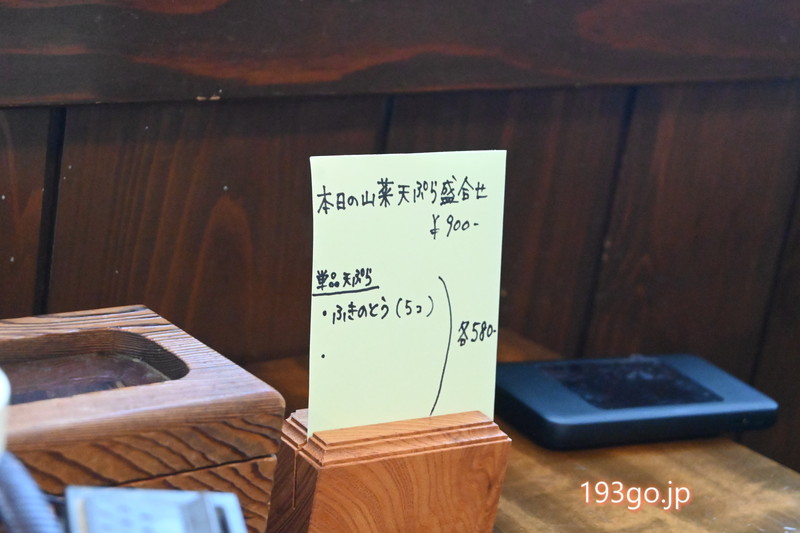 本日の山菜天ぷら盛合せ
¥900-
単品天ぷら
・ふきのとう(5コ)
各580-
・
193go.jp